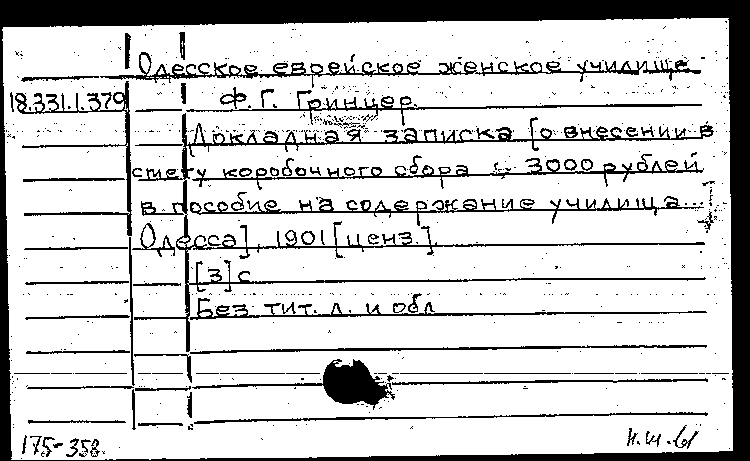 Одесское еврейское женское училище
18.331.1.379 Ф. Г. Гринцер.
Докладная записка [о внесении в
смету коробочного сбора 3000 рублей
в пособие на содержание училища...
Одесса], 1901 [ценз.].
[3] с
Без тит. л. и обл
175-358.